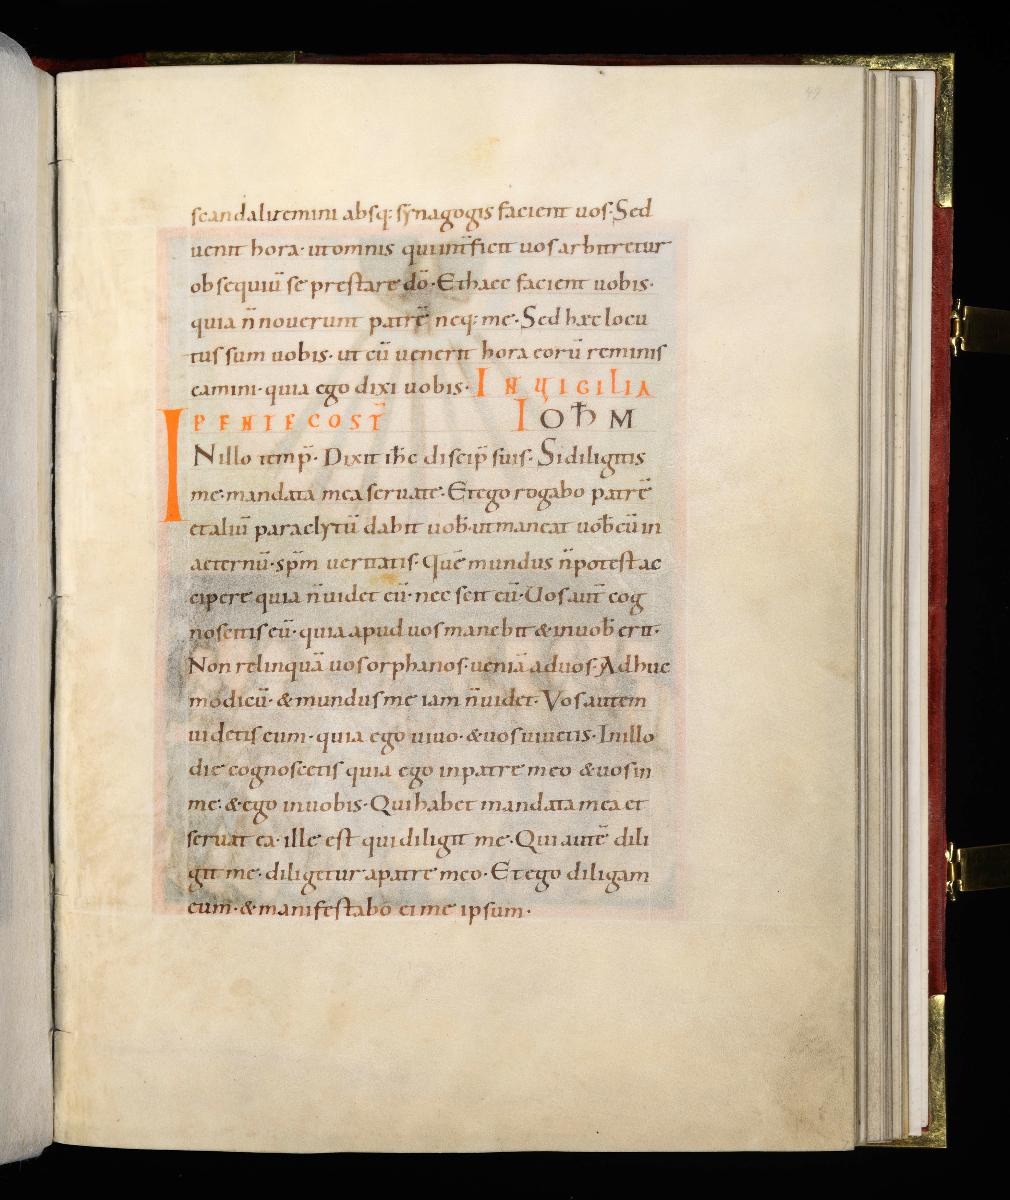 49
scandalizemini absq: synagogis facient uos. Sed
uenit hora. ut omnis qui int̄ficit uos arbitretur
obsequiū se prestare dō. Et haec facient uobis.
quia n̄ nouerunt patrē neq: me. Sed hæc locu
tus sum uobis. ut cū uenerit hora eorū reminis
camini. quia ego dixi uobis. IN VIGILIA
PENTECOST̄ IOH̄M
INillo temp̄. Dixit ih̄c discip̄ suis. Si diligitis
me. mandata mea seruate. Et ego rogabo patrē
et aliū paraclytū dabit uob̄. ut maneat uob̄cū in
aeternū. sp̄m ueritatis. Quē mundus n̄ potest ac
cipere quia n̄ uidet eū. nec scit eū. Uos aut̄ cog
noscitis eū. quia apud uos manebit & in uob̄ erit.
Non relinquā uos orphanos. ueniā ad uos. Adhuc
modicū. & mundus me iam n̄ uidet. Vos autem
uidetis eum. quia ego uiuo. & uos uiuetis. In illo
die cognoscetis quia ego in patre meo & uos in
me. & ego in uobis. Qui habet mandata mea et
seruat ea. ille est qui diligit me. Qui autē dili
git me. diligetur a patre meo. Et ego diligam
eum. & manifestabo ei me ipsum.